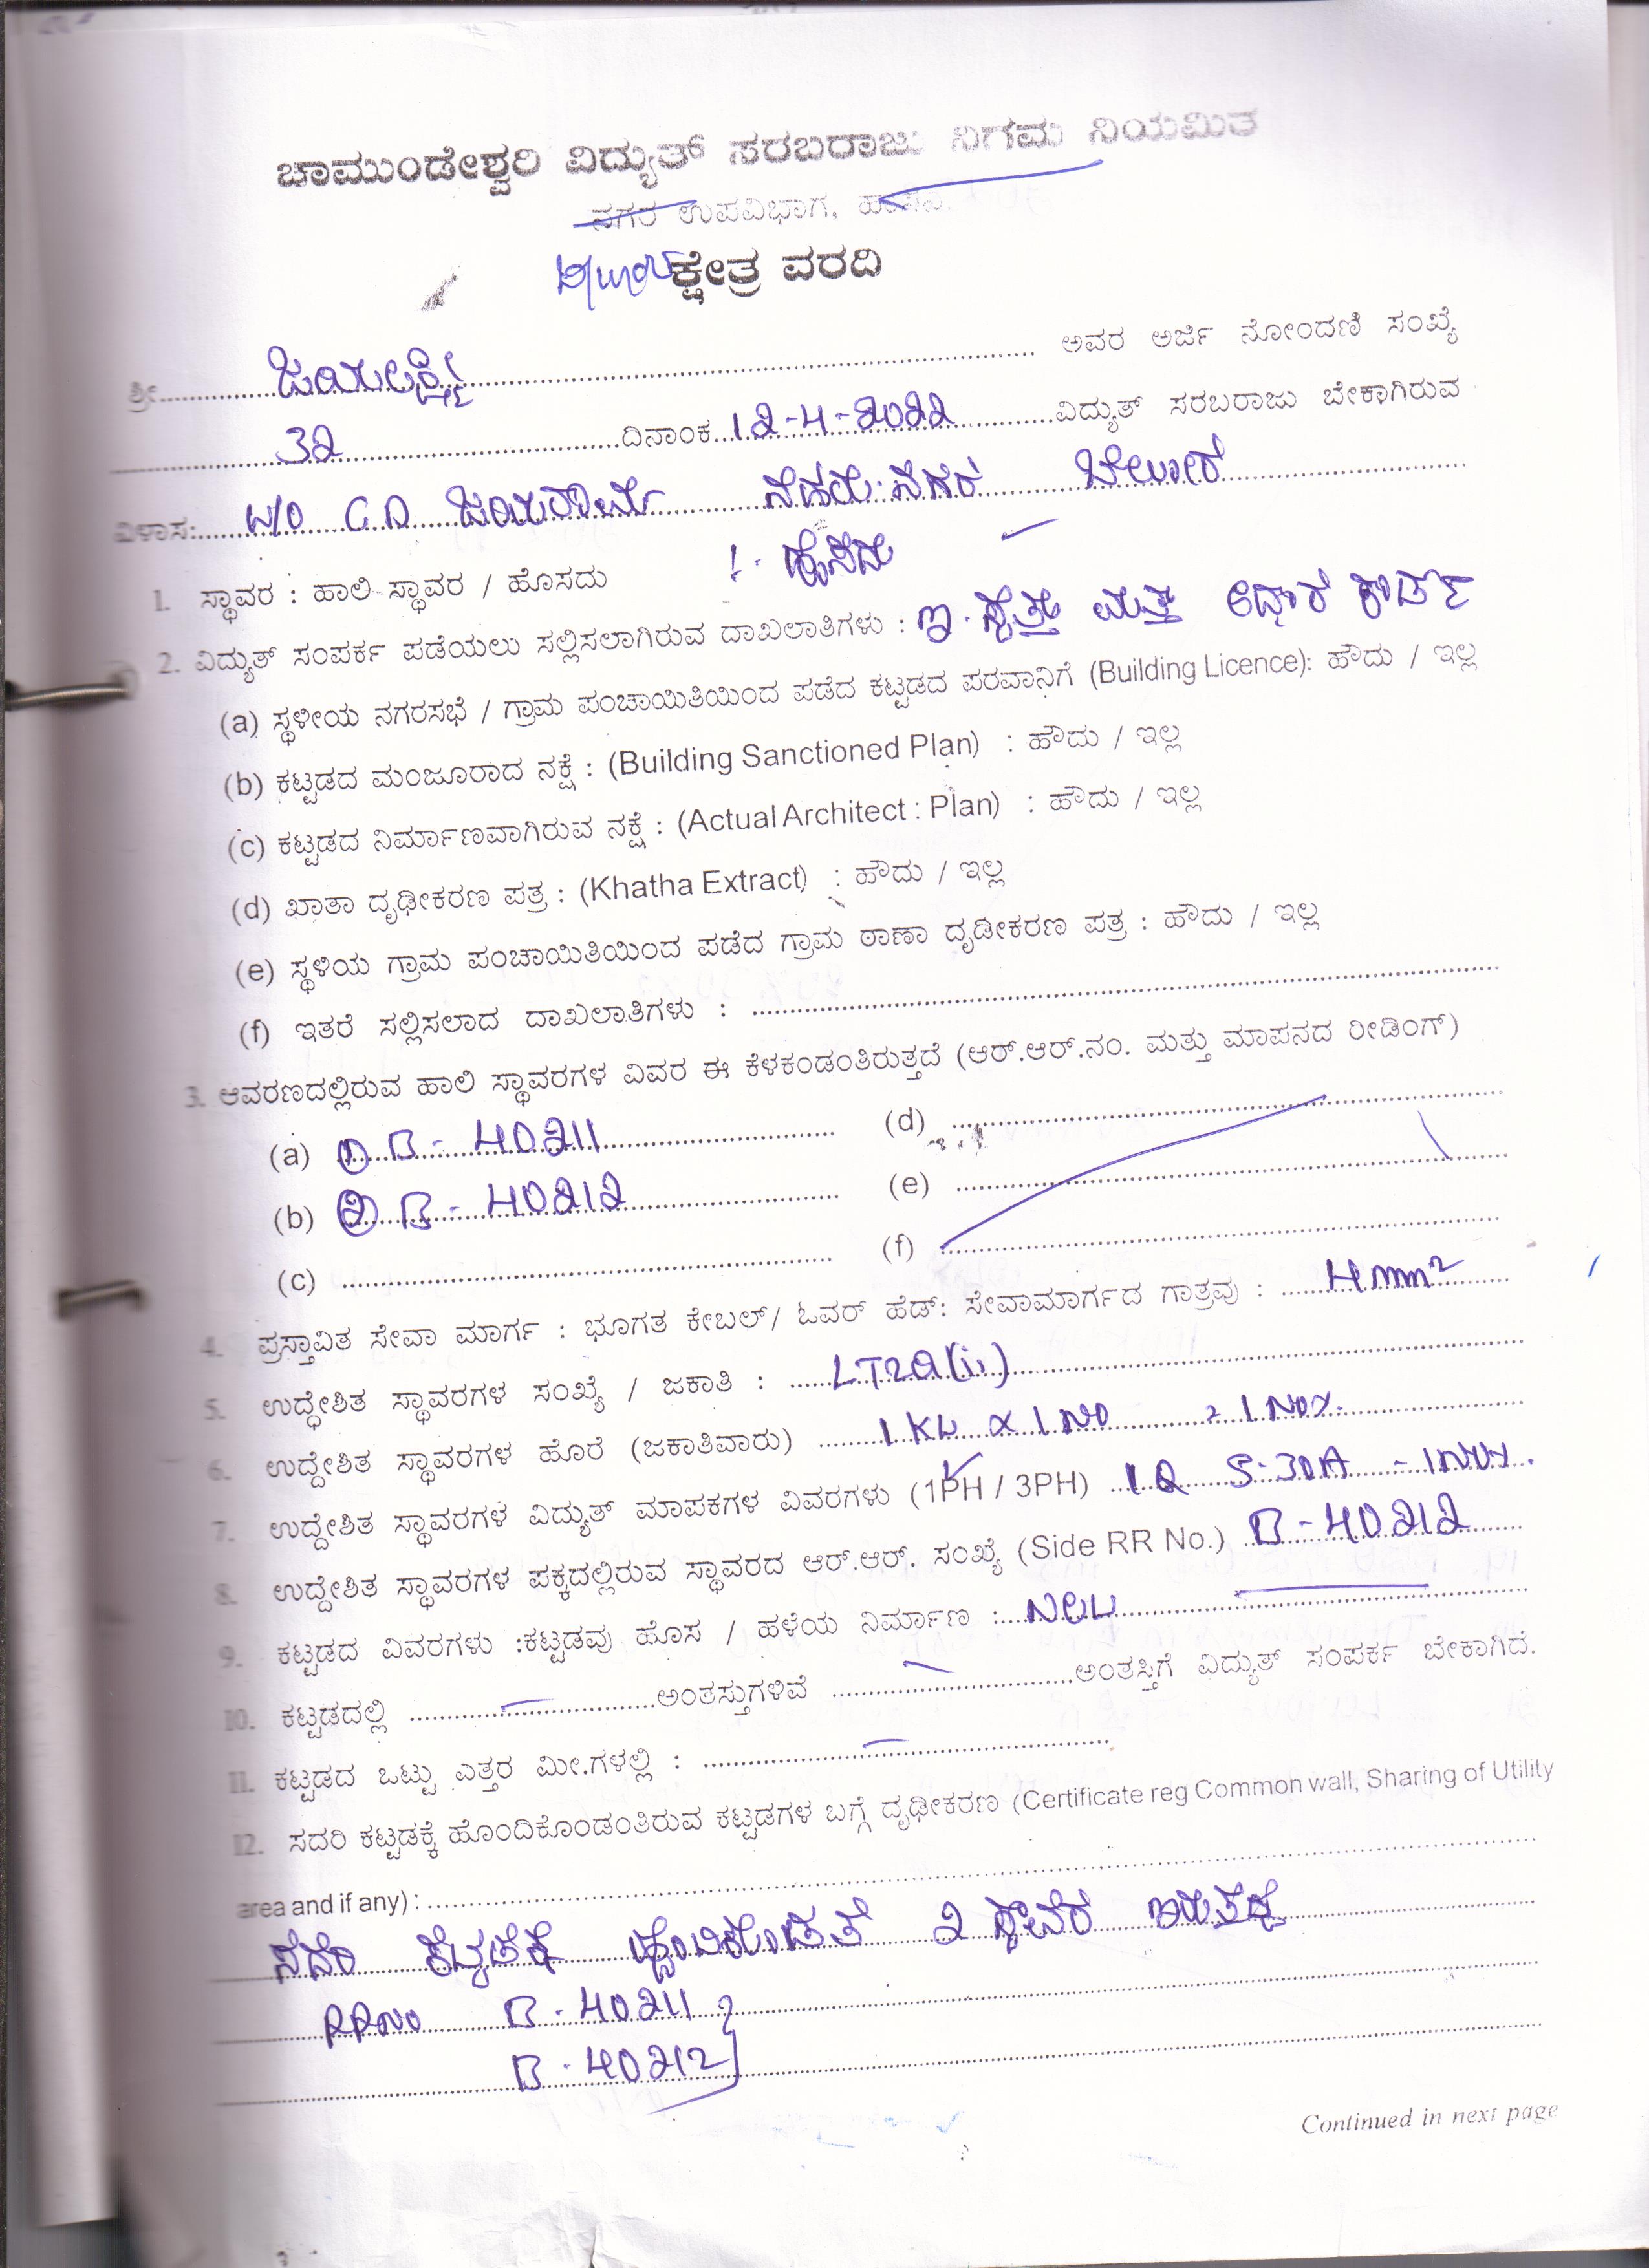 ಚಾಮುಂಡೇಶ್ವರಿ ವಿದ್ಯುತ್ ಸರಬರಾಜು ನಿಗಮ ನಿಯಮಿತ
ನಗರ ಉಪವಿಭಾಗ, ಹಾಸನ.
ಕ್ಷೇತ್ರ ವರದಿ
ಶ್ರೀ ಜಯಲಕ್ಷ್ಮಿ ಅವರ ಅರ್ಜಿ ನೋಂದಣಿ ಸಂಖ್ಯೆ
32 ದಿನಾಂಕ 12-4-2022 ವಿದ್ಯುತ್ ಸರಬರಾಜು ಬೇಕಾಗಿರುವ
ವಿಳಾಸ: W/O C D ಜಯರಾಮ್ ನೆಹರು ನಗರ ಬೇಲೂರು
1. ಸ್ಥಾವರ : ಹಾಲಿ ಸ್ಥಾವರ / ಹೊಸದು : ಹೊಸದು
2. ವಿದ್ಯುತ್ ಸಂಪರ್ಕ ಪಡೆಯಲು ಸಲ್ಲಿಸಲಾಗಿರುವ ದಾಖಲಾತಿಗಳು : ಇ. ಸ್ವತ್ತು ಮತ್ತು ಆಧಾರ ಕಾರ್ಡ್
(a) ಸ್ಥಳೀಯ ನಗರಸಭೆ / ಗ್ರಾಮ ಪಂಚಾಯಿತಿಯಿಂದ ಪಡೆದ ಕಟ್ಟಡದ ಪರವಾನಿಗೆ (Building Licence): ಹೌದು / ಇಲ್ಲ
(b) ಕಟ್ಟಡದ ಮಂಜೂರಾದ ನಕ್ಷೆ : (Building Sanctioned Plan) : ಹೌದು / ಇಲ್ಲ
(c) ಕಟ್ಟಡದ ನಿರ್ಮಾಣವಾಗಿರುವ ನಕ್ಷೆ : (Actual Architect : Plan) : ಹೌದು / ಇಲ್ಲ
(d) ಖಾತಾ ದೃಢೀಕರಣ ಪತ್ರ : (Khatha Extract) : ಹೌದು / ಇಲ್ಲ
(e) ಸ್ಥಳಿಯ ಗ್ರಾಮ ಪಂಚಾಯಿತಿಯಿಂದ ಪಡೆದ ಗ್ರಾಮ ಠಾಣಾ ದೃಡೀಕರಣ ಪತ್ರ : ಹೌದು / ಇಲ್ಲ
(f) ಇತರೆ ಸಲ್ಲಿಸಲಾದ ದಾಖಲಾತಿಗಳು :
3. ಆವರಣದಲ್ಲಿರುವ ಹಾಲಿ ಸ್ಥಾವರಗಳ ವಿವರ ಈ ಕೆಳಕಂಡಂತಿರುತ್ತದೆ (ಆರ್.ಆರ್.ನಂ. ಮತ್ತು ಮಾಪನದ ರೀಡಿಂಗ್)
(a) ① B - 40211 (d)
(b) ② B - 40212 (e)
(c) (f)
4. ಪ್ರಸ್ತಾವಿತ ಸೇವಾ ಮಾರ್ಗ : ಭೂಗತ ಕೇಬಲ್/ ಓವರ್ ಹೆಡ್: ಸೇವಾಮಾರ್ಗದ ಗಾತ್ರವು : 4 mm²
5. ಉದ್ಧೇಶಿತ ಸ್ಥಾವರಗಳ ಸಂಖ್ಯೆ / ಜಕಾತಿ : LT2a(ii)
6. ಉದ್ದೇಶಿತ ಸ್ಥಾವರಗಳ ಹೊರೆ (ಜಕಾತಿವಾರು) 1 KW x 1 NO
7. ಉದ್ದೇಶಿತ ಸ್ಥಾವರಗಳ ವಿದ್ಯುತ್ ಮಾಪಕಗಳ ವಿವರಗಳು (1PH / 3PH) 5-30A
8. ಉದ್ದೇಶಿತ ಸ್ಥಾವರಗಳ ಪಕ್ಕದಲ್ಲಿರುವ ಸ್ಥಾವರದ ಆರ್.ಆರ್. ಸಂಖ್ಯೆ (Side RR No.) B - 40212
9. ಕಟ್ಟಡದ ವಿವರಗಳು :ಕಟ್ಟಡವು ಹೊಸ / ಹಳೆಯ ನಿರ್ಮಾಣ : New
10. ಕಟ್ಟಡದಲ್ಲಿ ಅಂತಸ್ತುಗಳಿವೆ ಅಂತಸ್ತಿಗೆ ವಿದ್ಯುತ್ ಸಂಪರ್ಕ ಬೇಕಾಗಿದೆ.
11. ಕಟ್ಟಡದ ಒಟ್ಟು ಎತ್ತರ ಮೀ.ಗಳಲ್ಲಿ :
12. ಸದರಿ ಕಟ್ಟಡಕ್ಕೆ ಹೊಂದಿಕೊಂಡಂತಿರುವ ಕಟ್ಟಡಗಳ ಬಗ್ಗೆ ದೃಢೀಕರಣ (Certificate reg Common wall, Sharing of Utility
area and if any) :
ಸದರಿ ಕಟ್ಟಡಕ್ಕೆ ಹೊಂದಿಕೊಂಡಂತೆ 2 ಸ್ಥಾವರ ಇರುತ್ತದೆ
RRNO B - 40211
B - 40212
Continued in next page